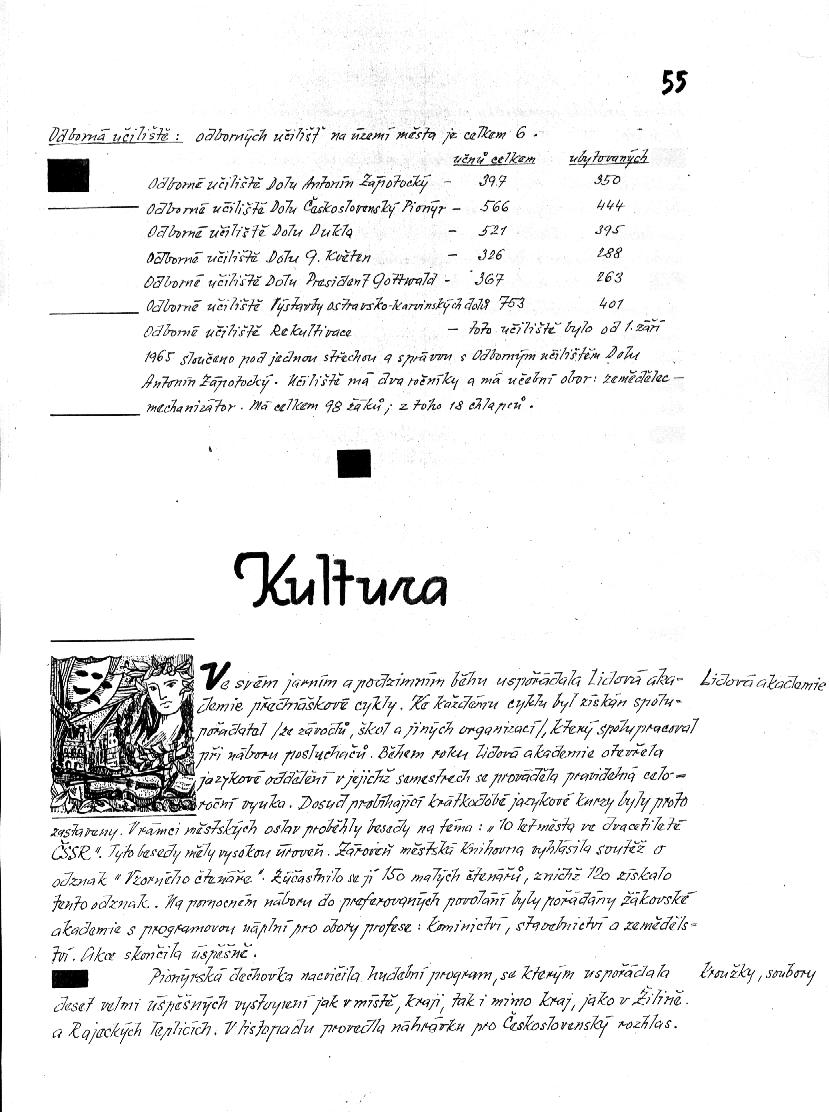 55
Odborná učiliště : odborných učilišť na území města je celkem 6 .
učňů celkem ubytovaných
Odborné učiliště Dolu Antonín Zápotocký - 397 350
Odborné učiliště Dolu Československý Pionýr - 566 444
Odborné učiliště Dolu Dukla - 521 395
Odborné učiliště Dolu 9. Květen - 326 288
Odborné učiliště Dolu President Gottwald - 367 263
Odborné učiliště Výstavby ostravsko-karvinských dolů 753 401
Odborné učiliště Rekultivace - toto učiliště bylo od 1. září
1965 sloučeno pod jednou střechou a správou s Odborným učilištěm Dolu
Antonín Zápotocký . Učiliště má dva ročníky a má učební obor : zemědělec -
mechanizátor . Má celkem 98 žáků ; z toho 18 chlapců .
Kultura
Ve svém jarním a podzimním běhu uspořádala Lidová aka- Lidová akademie
demie přednáškové cykly . Ke každému cyklu byl získán spolu-
pořadatel /ze závodů, škol a jiných organizací/, který spolupracoval
při náboru posluchačů . Během roku Lidová akademie otevřela
jazykové oddělení v jejichž semestrech se prováděla pravidelná celo-
roční výuka . Dosud probíhající krátkodobé jazykové kurzy byly proto
zastaveny. V rámci městských oslav proběhly besedy na téma : „ 10 let města ve dvacetileté
ČSSR ". Tyto besedy měly vysokou úroveň . Zároveň městská knihovna vyhlásila soutěž o
odznak " Vzorného čtenáře ". Zúčastnilo se jí 150 malých čtenářů, z nichž 120 získalo
tento odznak . Na pomocném náboru do preferovaných povolání byly pořádány žákovské
akademie s programovou náplní pro obory profese : kominictví, stavebnictví a zeměděls-
tví. Akce skončila úspěšně .
Pionýrská dechovka nacvičila hudební program, se kterým uspořádala kroužky, soubory
deset velmi úspěšných vystoupení jak v místě, kraji, tak i mimo kraj, jako v Žilině .
a Rajeckých Teplicích . V listopadu provedla nahrávku pro Československý rozhlas .